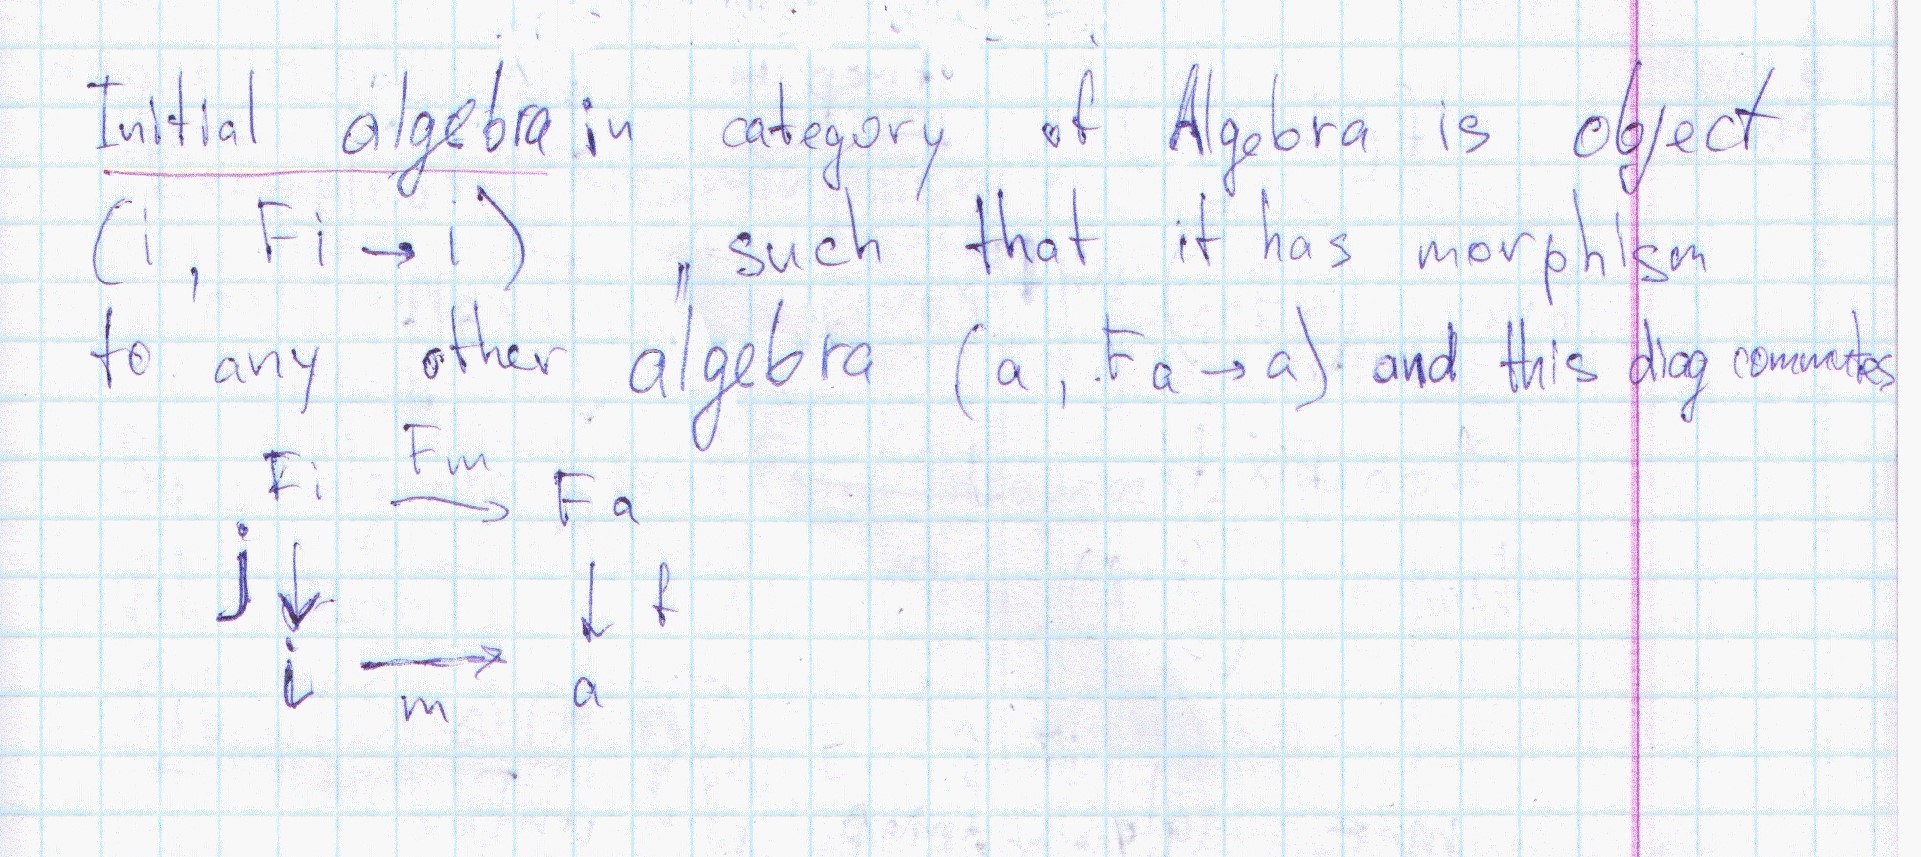 Initial algebra in category of Algebra is object
(i, Fi → i) , such that it has morphism
to any other algebra (a, Fa → a) and this diag commutes
Fi Fm → Fa
j ↓ ↓ f
i → a
m